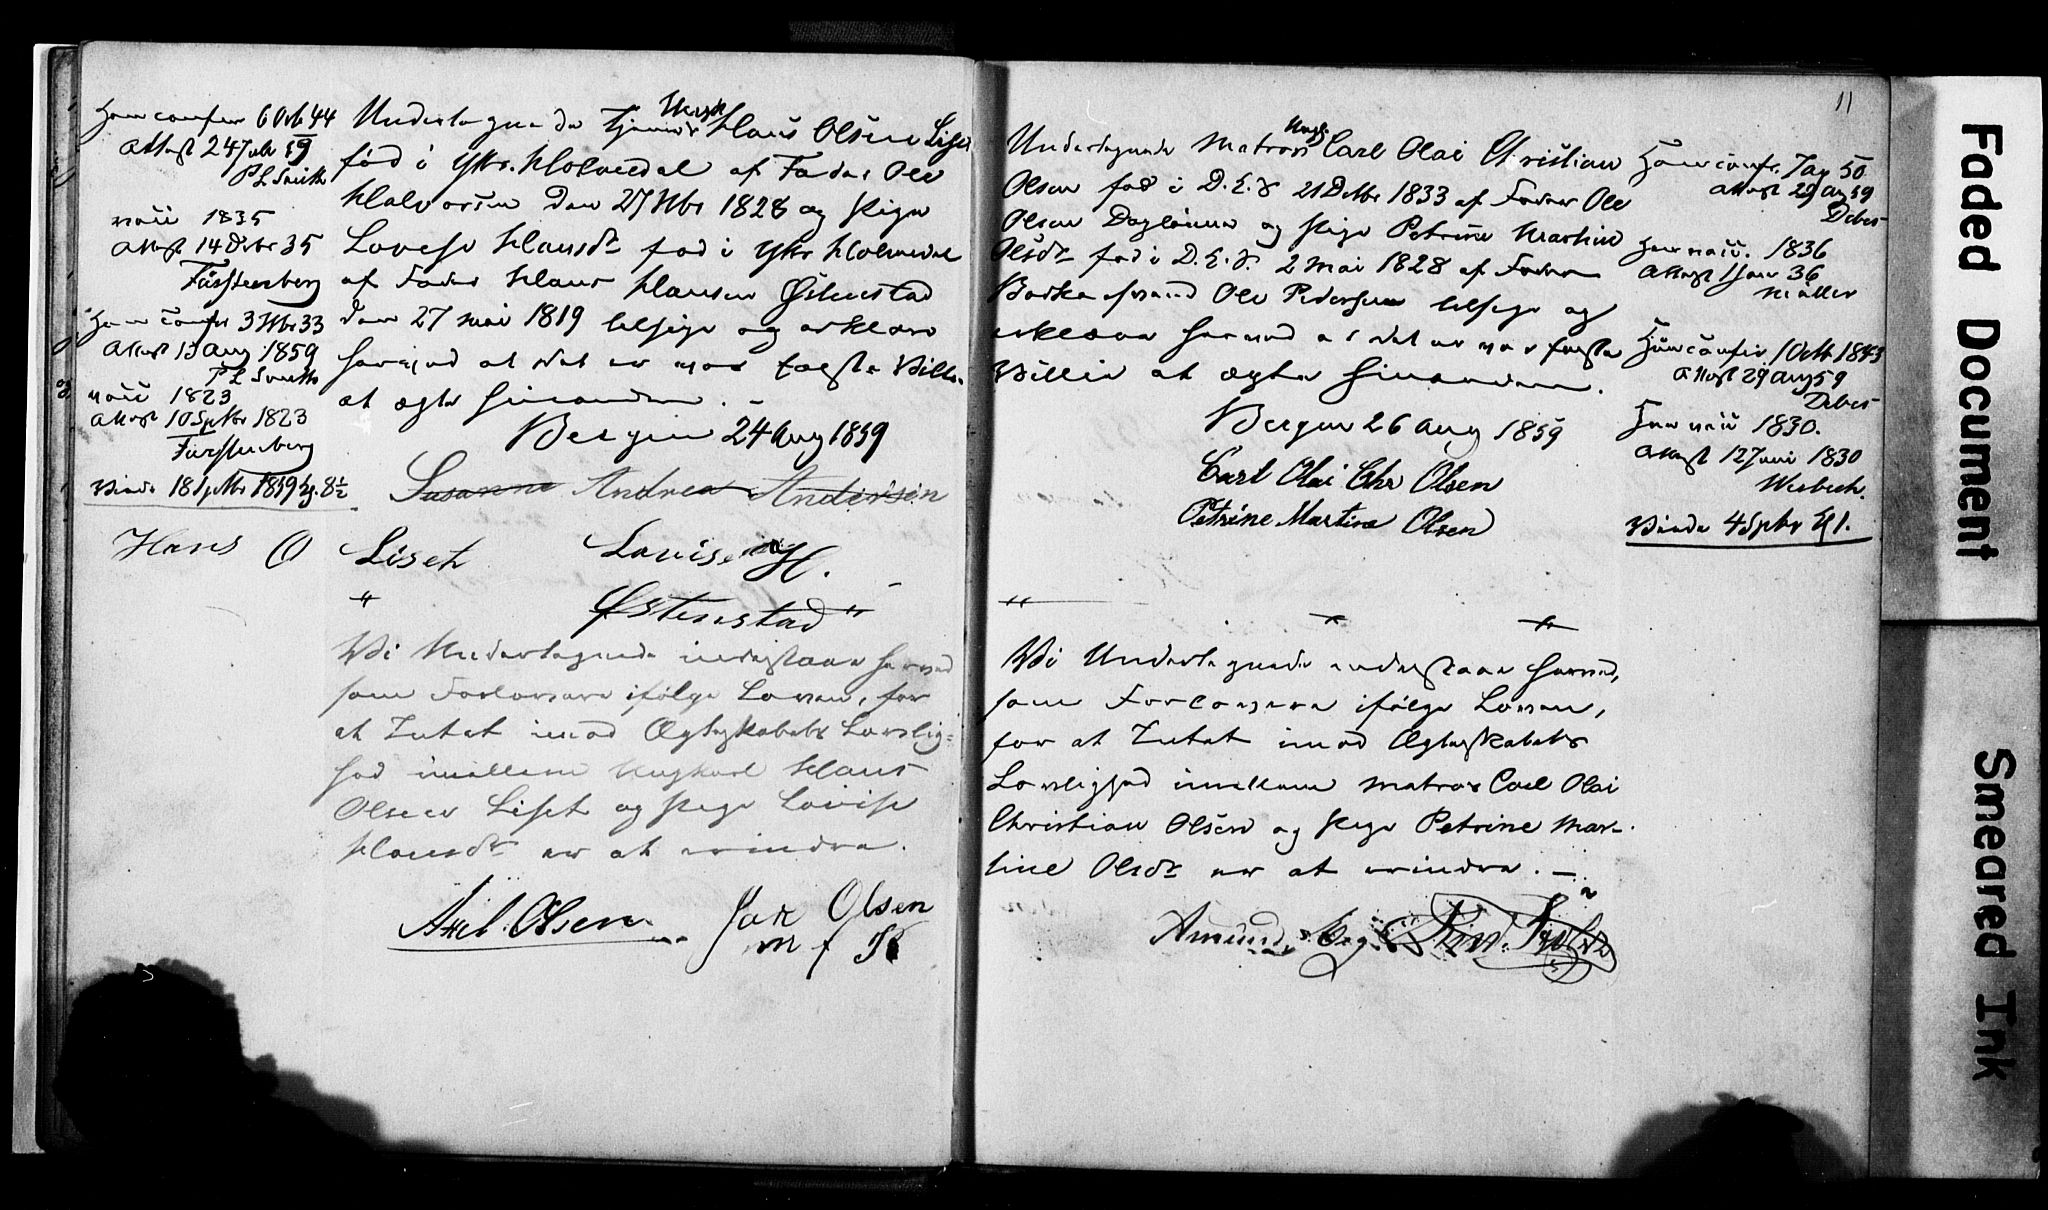 Han confr 6 Octb 44
Attest 24 Juli 59
P L Smith
vacc 1835
Attest 14 Debr 35
Fürstenberg
Hun confr 3 Nbr 33
Attest 13 Aug 1859
P L Smith
vacc 1823
Attest 10 Spbr 1823
Fürstenberg
Viede 18 Spbr 1859 kl. 8½
Undertegnede Tjener Ungk Hans Olsen Liset
fød i Ytr. Holmedal af Fader Ole
Halvorsen den 27 Nbr 1828 og Pige
Lovise Hansdr fød i Ytr Holmedal
af Fader Hans Hansen Østenstad
den 27 Mai 1819 tilsige og erklære
herved at det er vor faste Villie
at ægte hinanden. –
Bergen 24 Aug 1859
Susanne Andrea Andersen
Hans O Liset Lovise H.
" Østenstad "
Vi Undertegnede indestaae herved
som Forlovere ifølge Loven, for
at Intet imod Ægteskabets Lovlig=
hed imellem Ungkarl Hans
Olsen Liset og Pige Lovise
Hansdr er at erindre.
Axel. Olsen. Jak Olsen
m f P
11
Undertegnede Matros Ungk. Carl Olai Christian
Olsen fød i D. E. S. 21 Detbr 1833 af Fader Ole
Olsen Dagleiner og Pige Petrine Martine
Olsdr fød i D. E. S. 2 Mai 1828 af Fader
Ole Pedersen tilsige og
erklære herved at det er vor faste
Villie at ægte hinanden.
Bergen 26 Aug 1859
Carl Olai Chr Olsen
Petrine Martine Olsen
Vi Undertegnede indestaae herved,
som Forlovere ifølge Loven,
for at Intet imod Ægteskabets
Lovlighed imellem Matros Carl Olai
Christian Olsen og Pige Petrine Mar-
tine Olsdr er at erindre. –
Amund
Han confr. 7 Ap 50
Attest 29 Aug 59
Debes
Han vacc. 1836
Attest 1 Jan 36
Møller
Hun confir. 1 Octb 1843
Attest 29 Aug 59
Debes
Hun vacc 1830.
Attest 12 Juni 1830
Wesbech.
Viede 4 Spbr Kl 1.
Faded Document
Smeared Ink